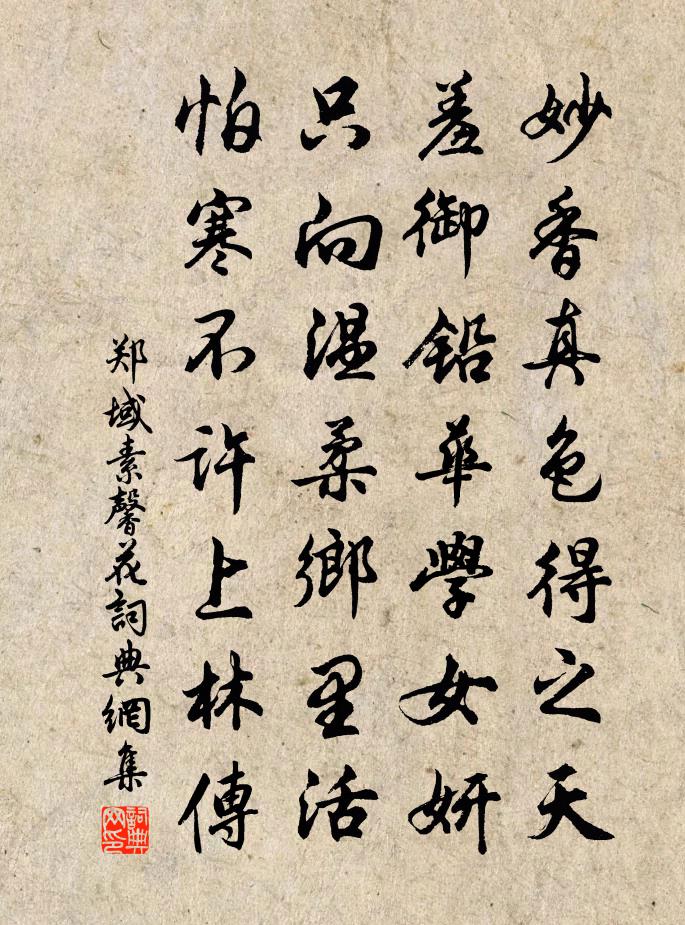 妙香真色得之天
羞御鉛華學女妍
只向温柔鄉里活
怕寒不許上林傳
郑域素馨花詞典網集
詞典网印